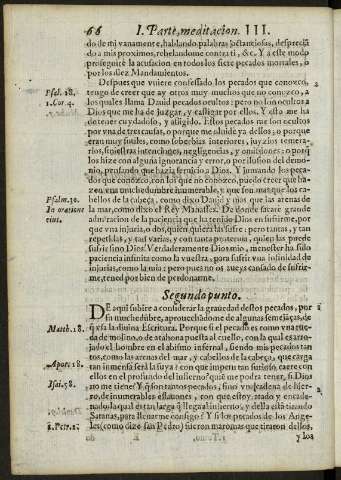 66 I. Parte, meditacion. III.
do de mi vanamente, hablando palabras jactanciosas, despreciã
do a mis proximos, rebelandome contra ti, &c. Y a este modo
proseguirè la acusacion en todos los siete pecados mortales, o
por los diez Mandamientos.
Despues que vuiere confessado los pecados que conozco,
Psal. 18. tengo de creer que ay otros muy muchos que no conozco, a
1. Cor. 4. los quales llama Dauid pecados ocultos: pero no son ocultos a
Dios que me ha de juzgar, y castigar por ellos. Y esto me ha
de tener cuydadoso, y afligido. Estos pecados me son ocultos
por vna de tres causas, o porque me oluidè ya dellos; o porque
eran muy sutiles, como soberbias interiores, juyzios temera-
rios, siniestras intenciones, negligencias, y omissiones; o porq̃
los hize con alguna ignorancia y error, o por ilusion del demo-
nio, pensando que hazia seruicio a Dios. Y juntando los peca-
dos que conozco, con los que no conozco, puedo creer que ha-
zen vna muchedumbre innumerable, y que son mas que los ca-
Psalm. 39. bellos de la cabeça, como dixo Dauid y mas que las arenas de
In oratione la mar, como dixo el Rey Manasses. De donde sacarè grande
eius. admiracion de la paciencia que ha tenido Dios en sufrirme, por
que vna injuria, o dos, quien quiera las sufre: pero tantas, y tan
repetidas, y tan varias, y con tanta proteruia, quien las puede
sufrir sino Dios? Verdaderamente Dios mio, menester ha sido
paciencia infinita como la vuestra, para sufrir vna infinidad de
injurias, como la mia: pero pues no os aueys cansado de sufrir-
me, tened por bien de perdonarme.
Segundo punto.
DE aqui subirè a considerar la grauedad destos pecados, por
su muchedũbre, aprouechandome de algunas semejãças, de
Matth. 18. q̃ vsa la diuina Escritura. Porque si el pecado es como vna rue-
da de molino, o de atahona puesta al cuello, con la qual es arro-
jado el hombre en el abismo infernal, siendo mis pecados tan-
tos, como las arenas del mar, y cabellos de la cabeça, que carga
Apoc. 18. tan inmensa serà la suya? con que impetu tan furioso, caerè con
ellos en el profundo del infierno? què me podrà tener, si Dios
Isai. 58. no me tiene? Y q̃ son tantos pecados, sino vna cadena de hier-
ro, de inumerables eslauones, con que estoy atado y encade-
nado, la qual es tan larga q̃ llega al infierno, y della està tirando
Satanas, para lleuarme consigo? Y si los pecados de los Ange-
2. Petr. 2. les (como dize san Pedro) fueron maromas que tiraron dellos,
y los